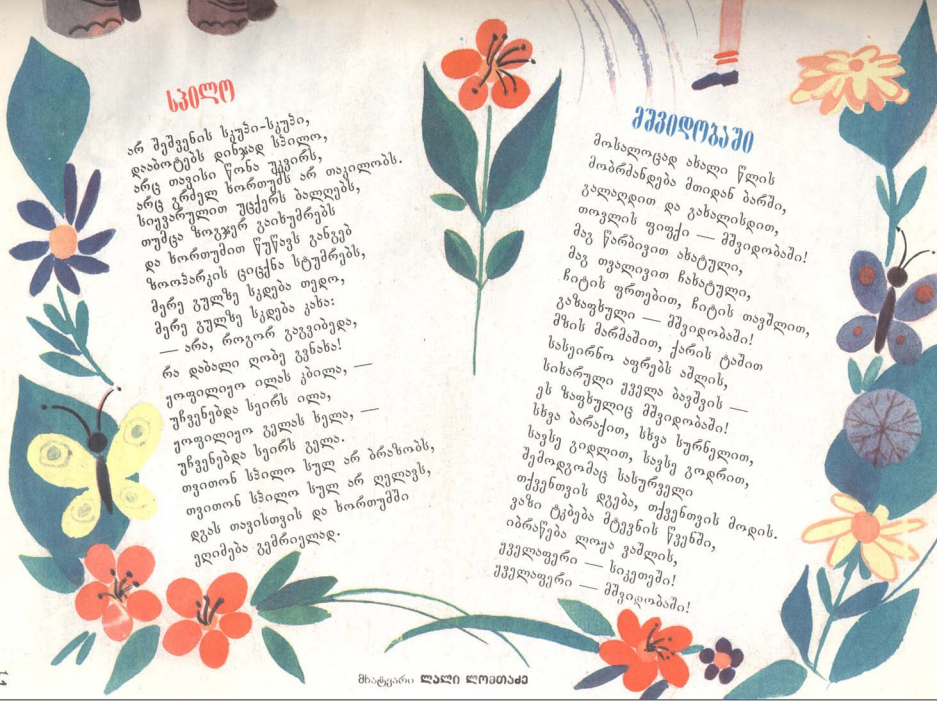 სპილო
არ შეშვენის სკუპი-სკუპი,
დააბოტებს დინჯად სპილო,
არც თავისი წონა უკვირს,
არც გრძელ ხორთუმს არ თაკილობს.
სიყვარულით უცქერს ბალღებს,
თუმცა ზოგჯერ გაიხუმრებს
და ხორთუმით წუწავს განგებ
ზოოპარკის ციცქნა სტუმრებს,
მერე გულზე სკდება თედო,
მერე გულზე სკდება კახა:
— არა, როგორ გაგვიბედა,
რა დაბალი ღობე გვნახა!
ყოფილიყო ილას კბილა, —
უჩვენებდა სეირს ილა,
ყოფილიყო გელას ხელა, —
უჩვენებდა სეირს გელა.
თვითონ სპილო სულ არ ბრაზობს,
თვითონ სპილო სულ არ ღელავს,
დგას თავისთვის და ხორთუმში
ეღიმება გემრიელად.
მშვიდობაში
მოსალოცად ახალი წლის
მობრძანდება მთიდან ბარში,
გალაღდით და გახალისდით,
თოვლის ფიფქი — მშვიდობაში!
მაგ წარბივით ახატული,
მაგ თვალივით ჩახატული,
ჩიტის ფრთებით, ჩიტის თავშლით,
გაზაფხული — მშვიდობაში!
მზის მარმაშით, ქარის ტაშით
სასეირნო აფრებს აშლის,
სიხარული ყველა ბავშვის —
ეს ზაფხულიც მშვიდობაში!
სხვა ბარაქით, სხვა სურნელით,
სავსე გიდლით, სავსე გოდრით,
შემოდგომაც სასურველი
თქვენთვის დგება, თქვენთვის მოდის.
ვაზი ტკბება მტევნის წვენში,
იბრაწება ლოყა ვაშლის,
ყველაფერი — სიკეთეში!
ყველაფერი — მშვიდობაში!
მხატვარი ლალი ლომთაძე